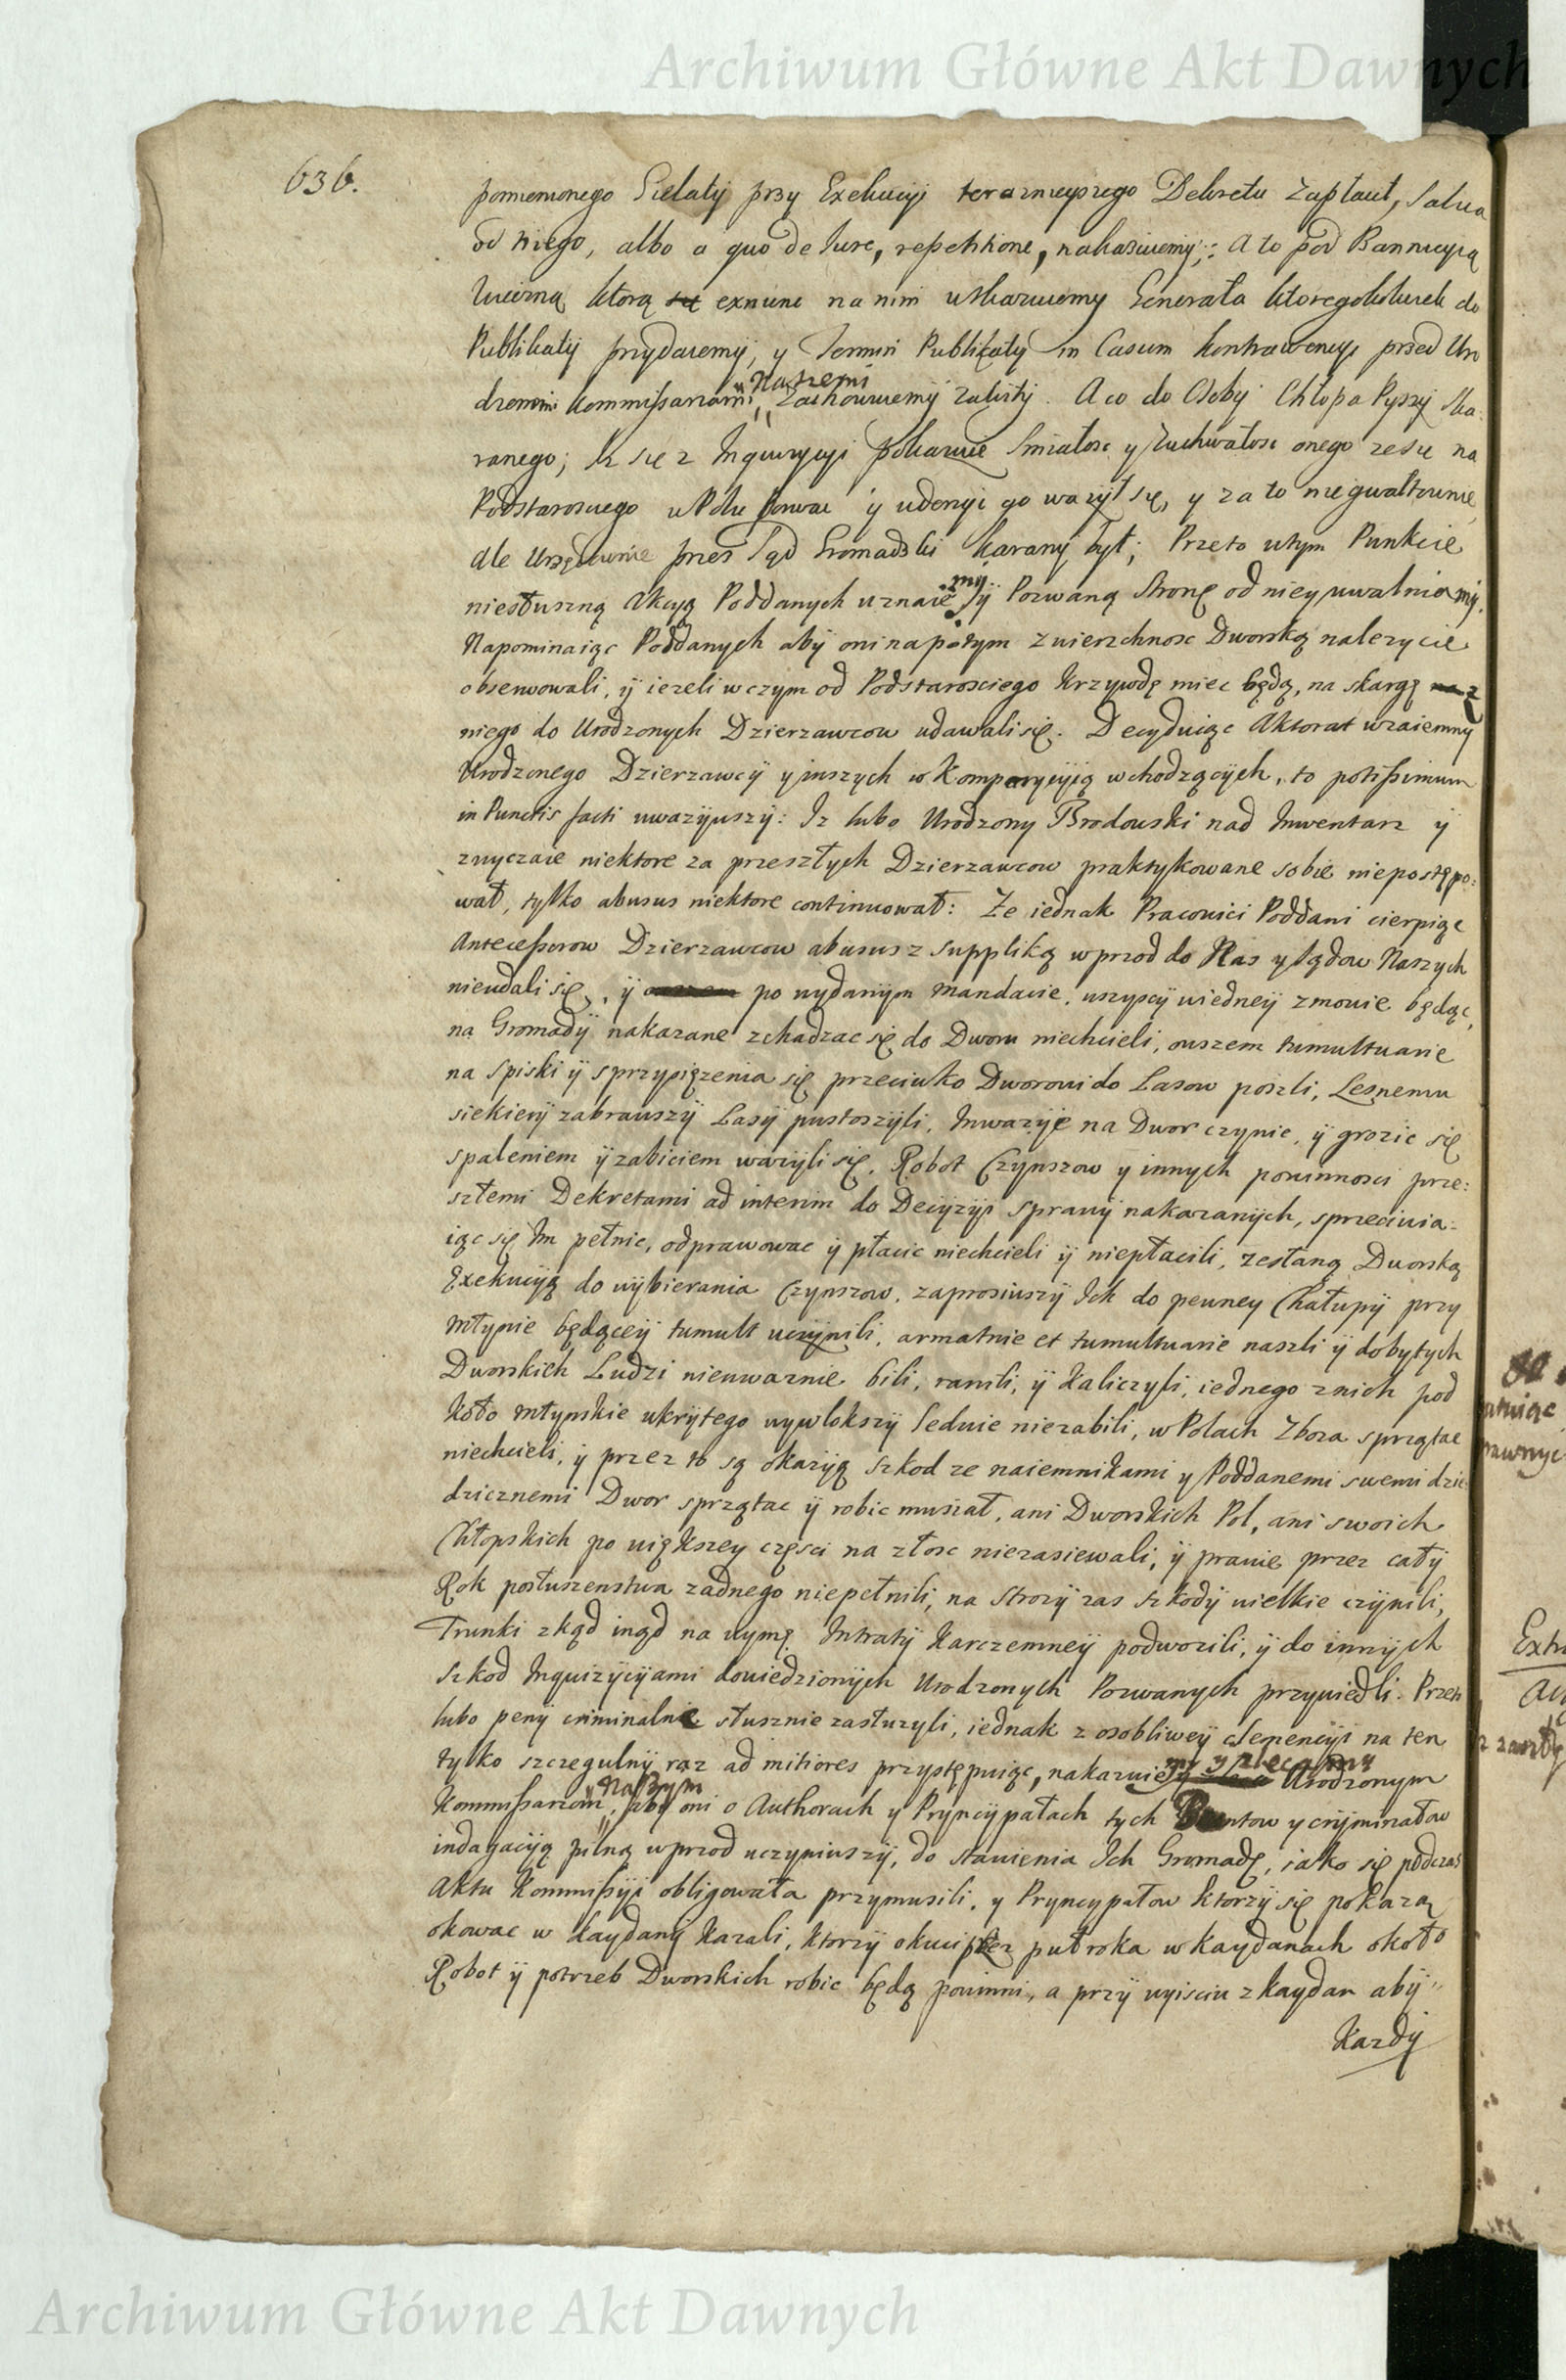 Archiwum Główne Akt Dawnych
636.
pomienonego Sielaty przy Exekucyi teraznieyszego Dekretu zapłacił, salua
od niego, albo a quo de Iure, repetitione, nakazuiemy; A to pod Bannicyią
wieczną ktorą exnunc na nim wskazuiemy Generała ktoregokolwiek do
Publikaty przydaiemy, y Termin Publikaty in Casum kontrawencyi przed Uro
dzonemi Kommissarzami Naszemi Zachowuiemy zawity. A co do Osoby Chłopa Pyszy ska
ranego; Iz się z Inquizycyi pokazuie smiałosc y zuchwałosc onego ze się na
Podstarosciego w Polu porwac y uderzyc go wazył się, y za to niegwałtownie
ale Urzędownie przez Sąd Gromadzki karany był; Przeto wtym Punkcie
niesłuszną Akcyą Poddanych uznaiemy y Pozwaną Stronę od niey uwalniamy.
Napominaiąc Poddanych aby oni napotym zwierzchnosc Dworską nalezycie
obserwowali, ÿ iezeli wczym od Podstarosciego Krzywdę miec będą, na skargę z
niego do Urodzonych Dzierzawcow udawali się. Decyduiąc Aktorat wzaiemny
Urodzonego Dzierzawcÿ y inszych w Komparycÿią wchodzącÿch, to potissimum
in Punctis facti uwazÿwszÿ: Iz lubo Urodzony Brodowski nad Inwentarz ÿ
zwyczaie niektore za przeszłych Dzierzawcow praktykowane sobie niepostępo:
wał, tylko abusus niektore continuował: Ze iednak Pracowici Poddani cierpiąc
Antecessorow Dzierzawcow abusus z suppliką wprzod do Nas y Sądow Naszych
nieudali się, ÿ po wydanÿm Mandacie, wszyscÿ wiedneÿ zmowie będąc,
na Gromadÿ nakazane zchadzac się do Dworu niechcieli, owszem tumultuarie
na spiski ÿ sprzysiązenia się przeciwko Dworowi do Lasow poszli, Lesnemu
siekierÿ zabrawszÿ Lasÿ pustoszÿli, Inwazÿie na Dwor czynic, ÿ grozic się
spaleniem ÿ zabiciem wazÿli się, Robot Czynszow y innych powinnosci prze:
szłemi Dekretami ad interim do Decÿzÿi sprawÿ nakazanÿch, sprzeciwia:
iąc się Im pełnic, odprawowac ÿ płacic niechcieli ÿ niepłacili, zesłaną Dworską
Exekucÿą do wÿbierania Czynszow, zaprosiwszÿ Ich do pewney Chałupÿ przy
Młynie będąceÿ tumult uczÿnili, armatnie et tumultuarie naszli ÿ dobytych
Dworskich Ludzi nieuwaznie bili, ranili, ÿ kaliczyli, iednego znich pod
Koło Młynskie ukrÿtego wywlokszÿ ledwie niezabili, w Polach Zboza sprzątac
niechcieli, ÿ przez to są okazÿą szkod ze naiemnikami y Poddanemi swemi dzie
dzicznemi Dwor sprzątac ÿ robic musiał, ani Dworskich Pol, ani swoich
Chłopskich po większey częsci na złosc niezasiewali, ÿ prawie przez całÿ
Rok posłuszenstwa zadnego niepełnili, na strozÿ zas szkodÿ wielkie czÿnili,
Trunki zkąd inąd na uymę Intratÿ Karczemneÿ podwozili, ÿ do innÿch
szkod Inquizÿcÿami dowiedzionÿch Urodzonych Pozwanych przywiedli. Przeto
lubo peny criminalne słusznie zasłuzyli, iednak z osobliweÿ clemencÿi na ten
tylko szczegulnÿ raz ad mitiores przystępuiąc, nakazuiemy y zlecamy Urodzonym
Kommissarzom Naszym, aby oni o Authorach y Pryncÿpałach tych Buntow y crÿminałow
indagacÿą pilną wprzod uczyniwszÿ, do stawienia Ich Gromadę, iako się podczas
Aktu Kommissÿi obligowała przymusili, y Pryncypałow ktorzÿ się pokazą
okowac w kaydanÿ kazali, ktorzÿ okuci przez puł roka w kaydanach około
Robot ÿ potrzeb Dworskich robic będą powinni, a przÿ wyisciu z kaydan abÿ
Kazdÿ
Archiwum Główne Akt Dawnych